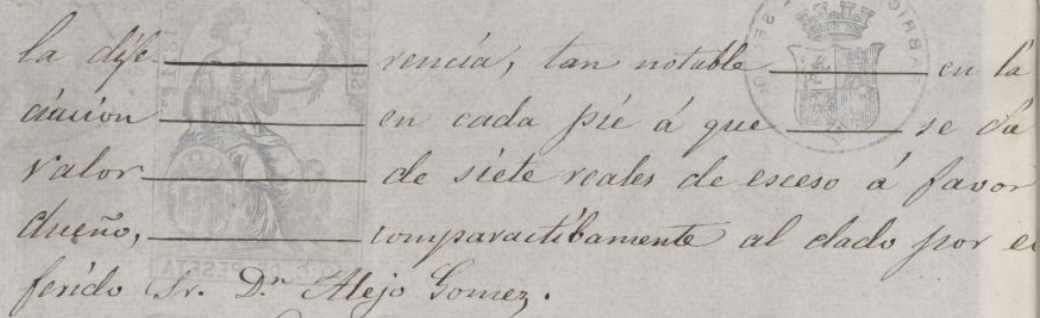 la dife rencia, tan notable en la
ciacion en cada pié á que se da
valor de siete reales de esceso á favor
dueño, comparactibamente al dado por el
ferido Sr. Dn Alejo Gomez.